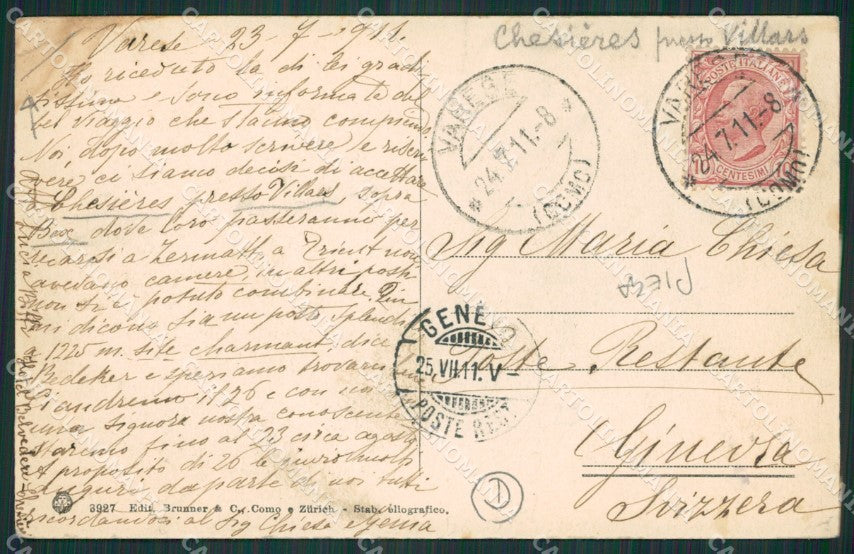 Varese 23-7-1911.
Ho ricevuto la di lei
e sono informata del
viaggio che stanno compiendo
Noi dopo molto scrivere e
ci siamo decisi di accettare
Chesières presso Villars sopra
Bex dove loro passeranno per
recarsi a Zermatt. a Trient non
avevano camere, in altri posti
non si è potuto combinare.
mi dicono sia un posto splendido
1225 m. site charmant, dice
Bedeker e speriamo trovarci
andremo il 26 e con noi
una signora nostra conoscente
staremo fino al 23 circa agosto
A proposito di 26 le
auguri da parte di noi tutti
ricordandoci al Sig Chiesa e Gemma
Hotel Belvedere
Chesières presso Villars
VARESE
24.7.11.-8
(COMO)
POSTE ITALIANE
CENTESIMI 10
VARESE
24.7.11-8
(COMO)
Sig Maria Chiesa
Poste Restante
Ginevra
Svizzera
GENÈVE
25.VII.11.V-
POSTE REST.
1
3927 Edit. Brunner & C., Como e Zürich - Stab. eliografico.
CARTOLINOMANIA